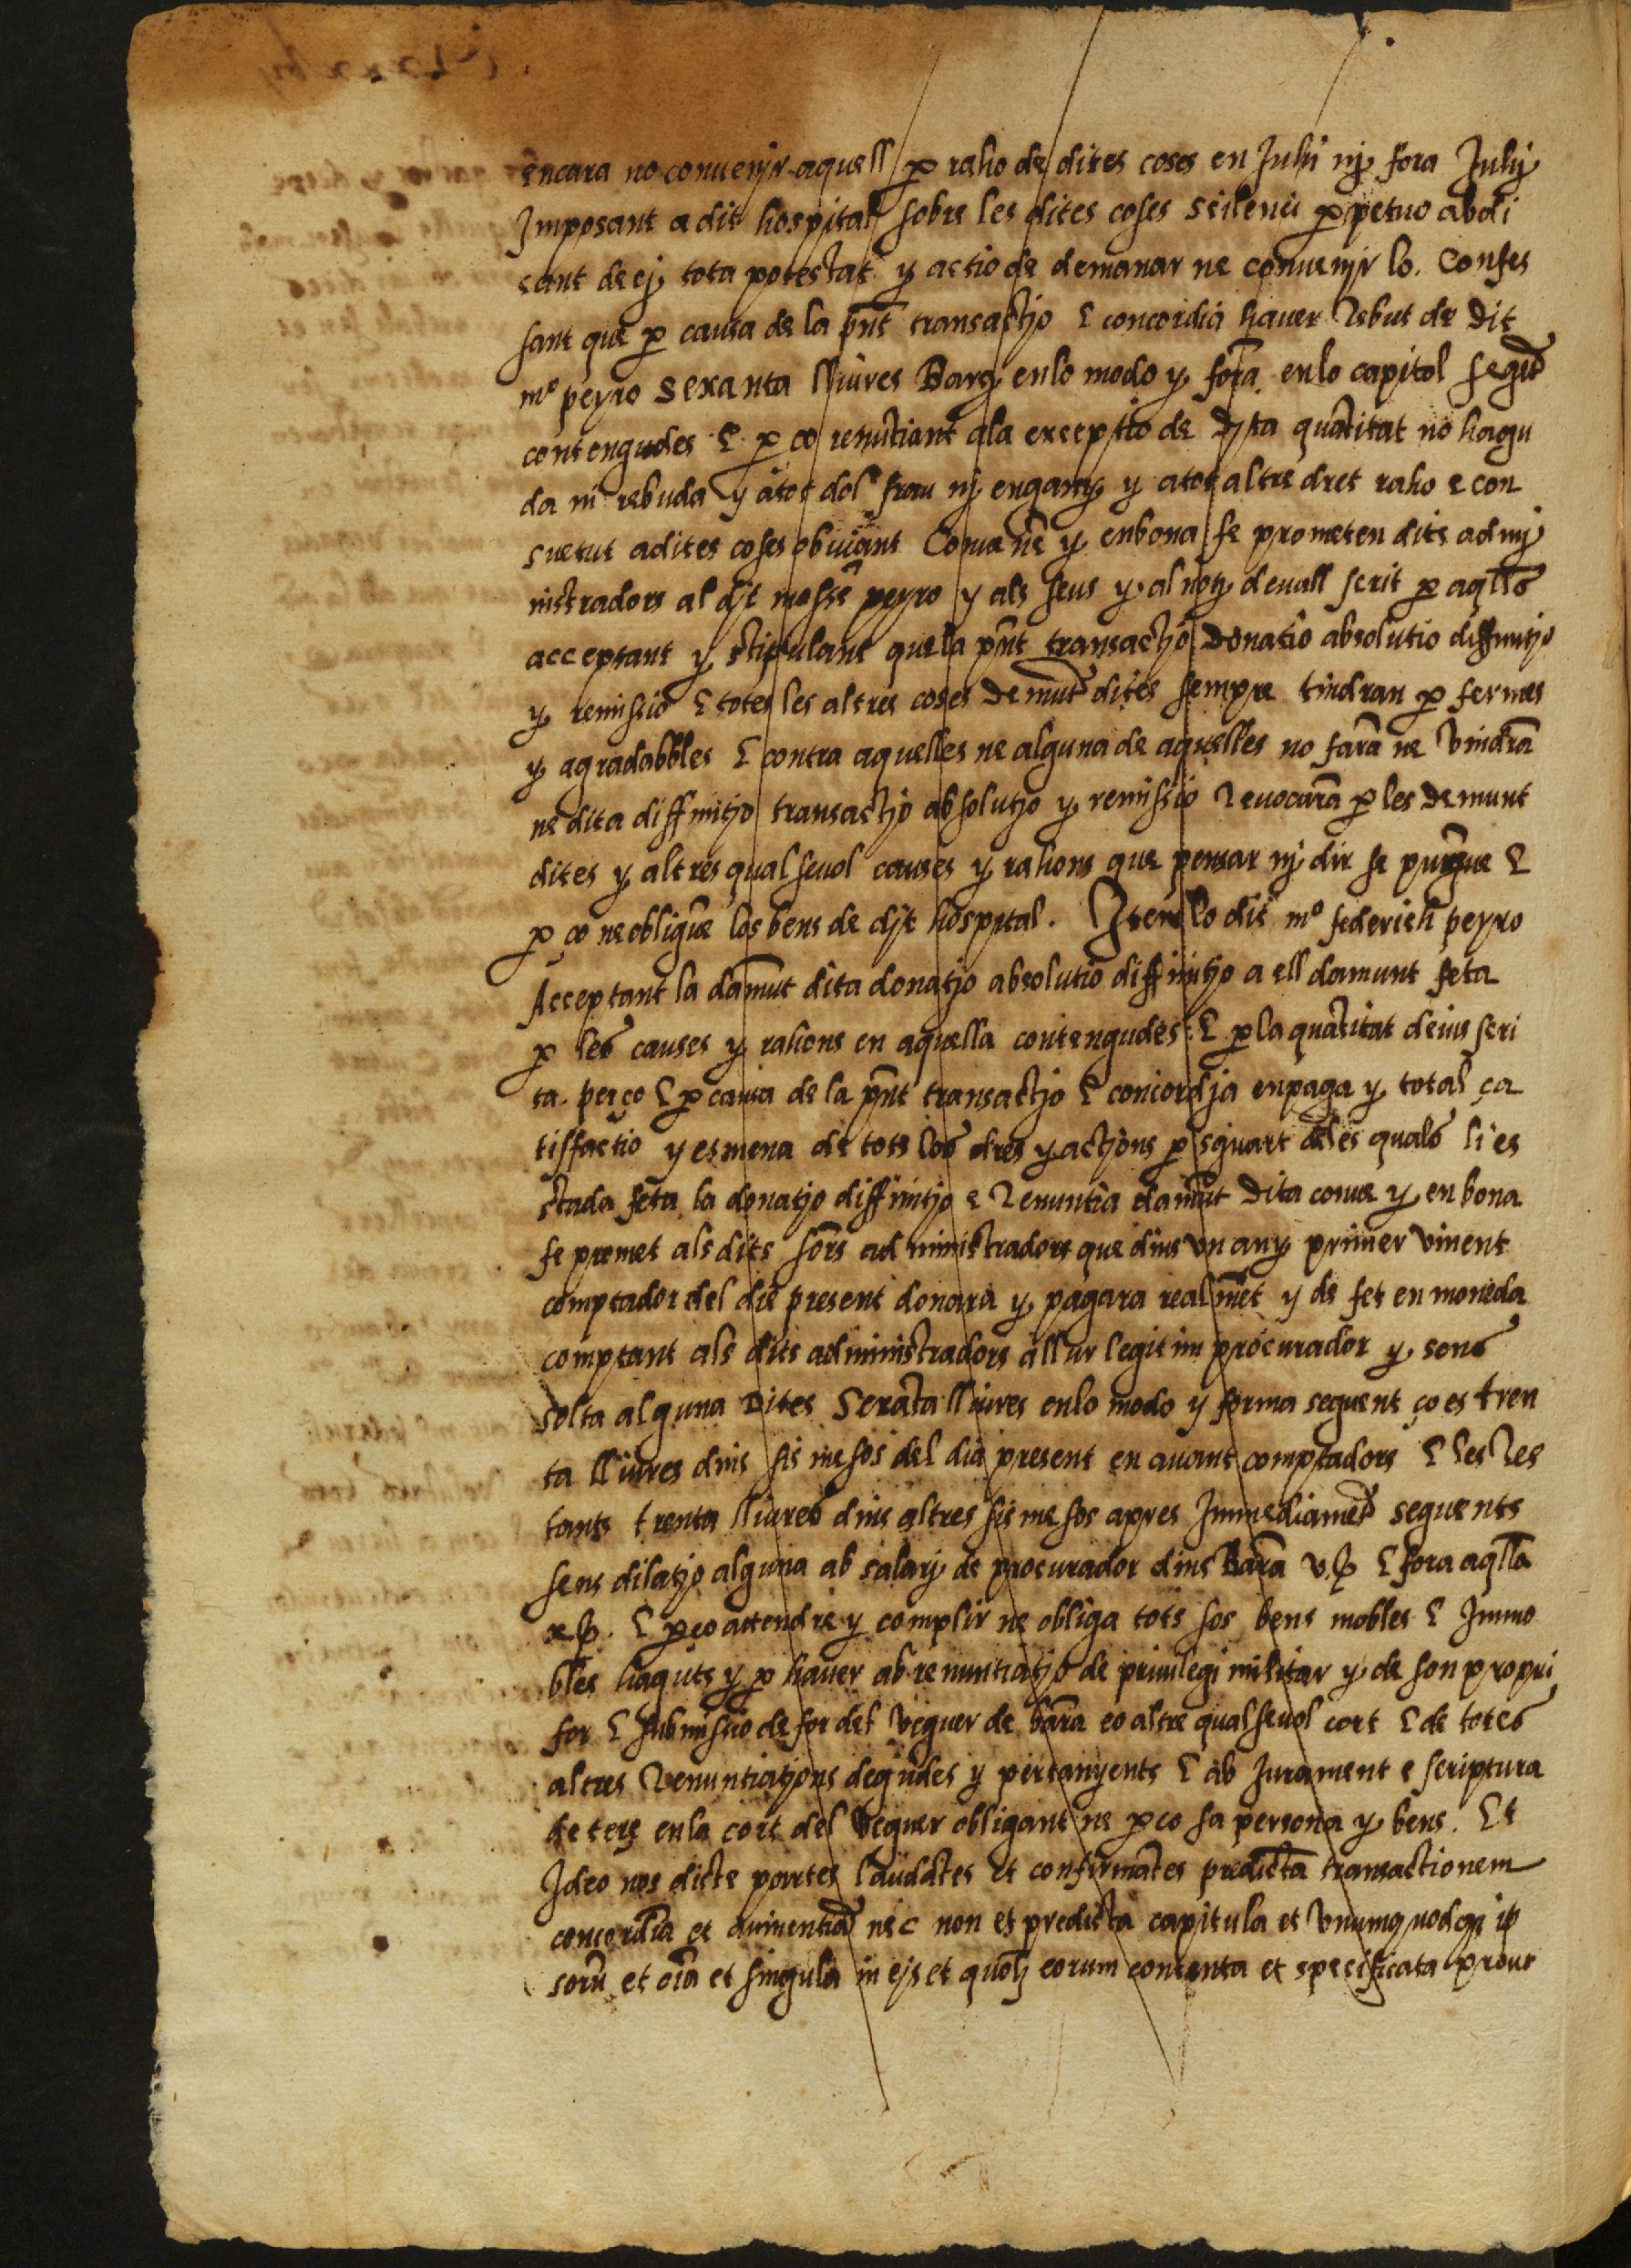 encara no convenjr aquell per raho de dites coses en Juhij nj fora Juhij
Imposant a dit hospital sobre les dites coses scilenci perpetuo abdi
cant de ej tota potestat y actio de demanar ne convenjr lo. Confes
sant que per causa de la pñt transactjo E concordia haver Rebut de dit
mº peyro sexanta lliures Barç en lo modo y forã en lo capitol seguẽt
contengudes E per ço renũtiant ala exceptio de djta quãtitat no hagu
da ni rebuda y a tot dol frau nj engany y a tot altre dret raho e con
suetut a dites coses obviant Convenẽ y en bona fe prometen dits admj
nistradors al djt mossẽ peyro y als seus y al notj devall scrit per aqlls
acceptant y stipulant que la pñt transactjo donatio absolutio diffinitjo
y remissio E totes les altres coses demũt dites sempre tindran per fermes
y agradabbles E contra aquelles ne alguna de aquelles no farã ne vindrã
ne dita diffinitjo transactjo absolutjo y remissio Revocarã per les demunt
dites y altres qualsevol causes y rahons que pensar nj dir se pugue E
per ço ne obliguẽ los bens de djt hospital. Item lo dit mº federich peyro
Acceptant la damũt dita donatjo absolutio diffinitjo a ell damunt feta
per les causes y rahons en aquella contengudes E per la quãtitat deius scri
ta. perço E per causa de la pñt transactjo E concordja en paga y total ça
tisfactio y esmena de tots los drets y actjons per sguart deles quals li es
stada feta la donatjo diffinitjo e Renuntia damũt dita convẽ y en bona
fe promet als dits sõrs administradors que dins un any primer vinent
comptador del die present donara y pagara realmẽt y de fet en moneda
comptant als dits administradors a llur legitim procurador y sens
solta alguna dites Sexãta lliures en lo modo y forma seguent ço es tren
ta lliures dins sis mesos del dia present en avant comptadors E les Res
tants trenta lliures dins altres sis mesos apres Immediamẽt seguents
sens dilatjo alguna ab salarj de procurador dins Barã v ß E fora aqlla
x ß. E perço attendre y complir ne obliga tots sos bens mobles E Immo
bles haguts y per haver ab renuntiatjo de privilegi militar y de son propri
for E submissio de for del veguer de barã e o altre qualsevol cort E de totes
altres Renuntiatjons degudes y pertanyents E ab Jurament e scriptura
de terç en la cort del veguer obligant ne perço sa persona y bens. Et
Ideo nos dicte partes laudãtes et confirmãtes predictã transactionem
concordiã et avinentiã nec non et predicta capitula et unumquodqȝ ip
sorũ et oĩa et singula in ejs et quolȝ eorum contenta et specificata prout